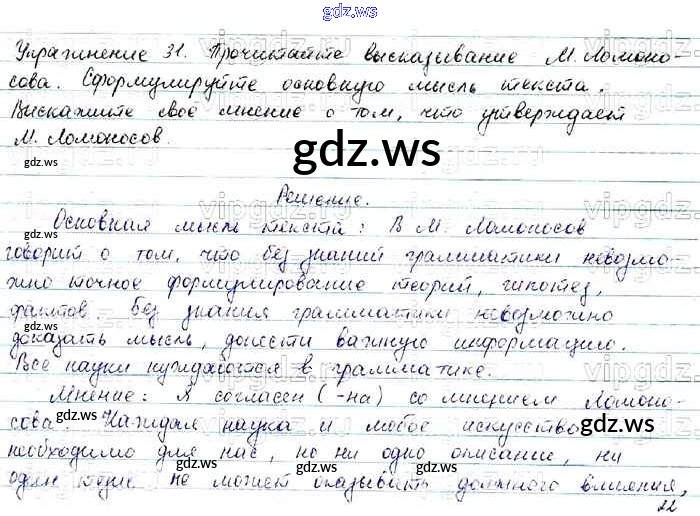 gdz.ws
Упражнение 31. Прочитайте высказывание М. Ломоно-
сова. Сформулируйте основную мысль текста.
Выскажите своё мнение о том, что утверждает
М. Ломоносов.
gdz.ws
gdz.ws
gdz.ws
Решение.
Основная мысль текста: В М. Ломоносов
говорит о том, что без знаний грамматики невозмо-
жно точное формулирование теорий, гипотез,
фактов. Без знания грамматики невозможно
доказать мысль, донести важную информацию.
gdz.ws
gdz.ws
Все науки нуждаются в грамматике.
Мнение: Я согласен (-на) со мнением Ломоно-
сова. Каждая наука и любое искусство
gdz.ws
gdz.ws
необходимо для нас, но ни одно описание, ни
один не может оказывать должного влияния,
gdz.ws
gdz.ws
22